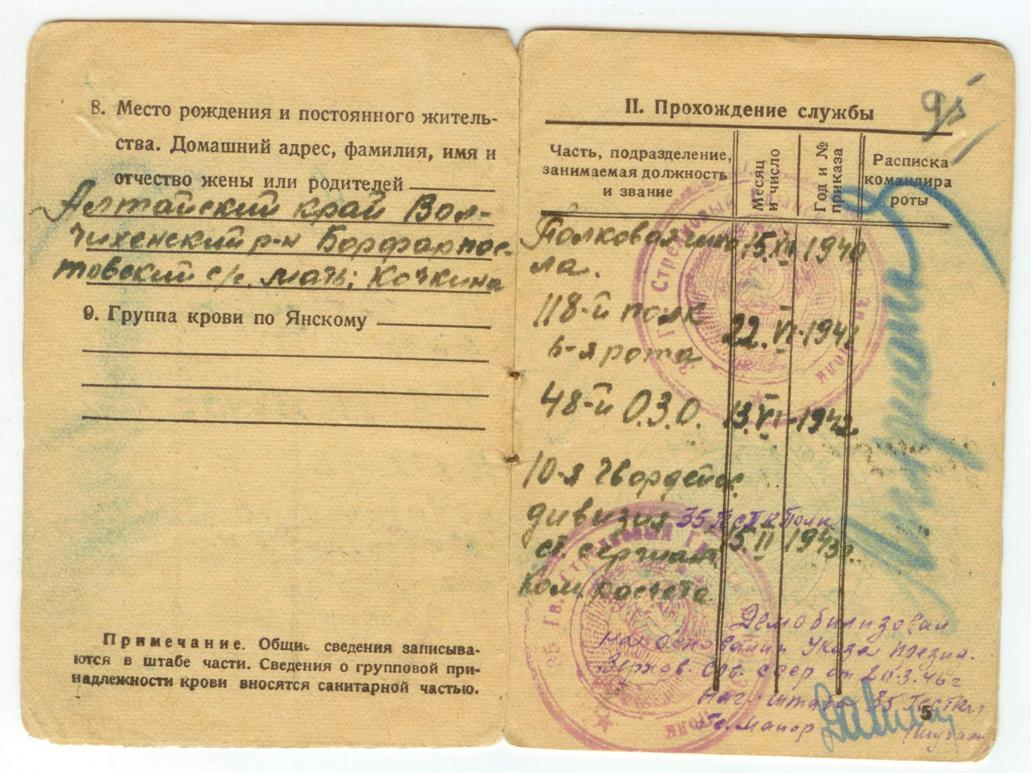 8. Место рождения и постоянного житель-
ства. Домашний адрес, фамилия, имя и
отчество жены или родителей
Алтайский край Вол-
чихенский р-н Борфарпос-
товский с/с. мать: Кочкина
9. Группа крови по Янскому
Примечание. Общие сведения записыва-
ются в штабе части. Сведения о групповой при-
надлежности крови вносятся санитарной частью.
95
II. Прохождение службы
Часть, подразделение,
занимаемая должность
и звание
Месяц
и число
Год и №
приказа
Расписка
командира
роты
Полковая шко
ла. 15. 1940
118-й полк
22.VI-1941
6-я рота
48-й О.З.О. 13.VI-1942
10-я Гвардейс
дивизия 35
ст. сержант 15.II 1943г
Ком. расчета
35 Гв. Стрелковый Полк
Демобилизован
на основании Указа Презид.
Верхов. Сов. СССР от 20.3.46г
Нач. штаба 35
Гв. Майор
5